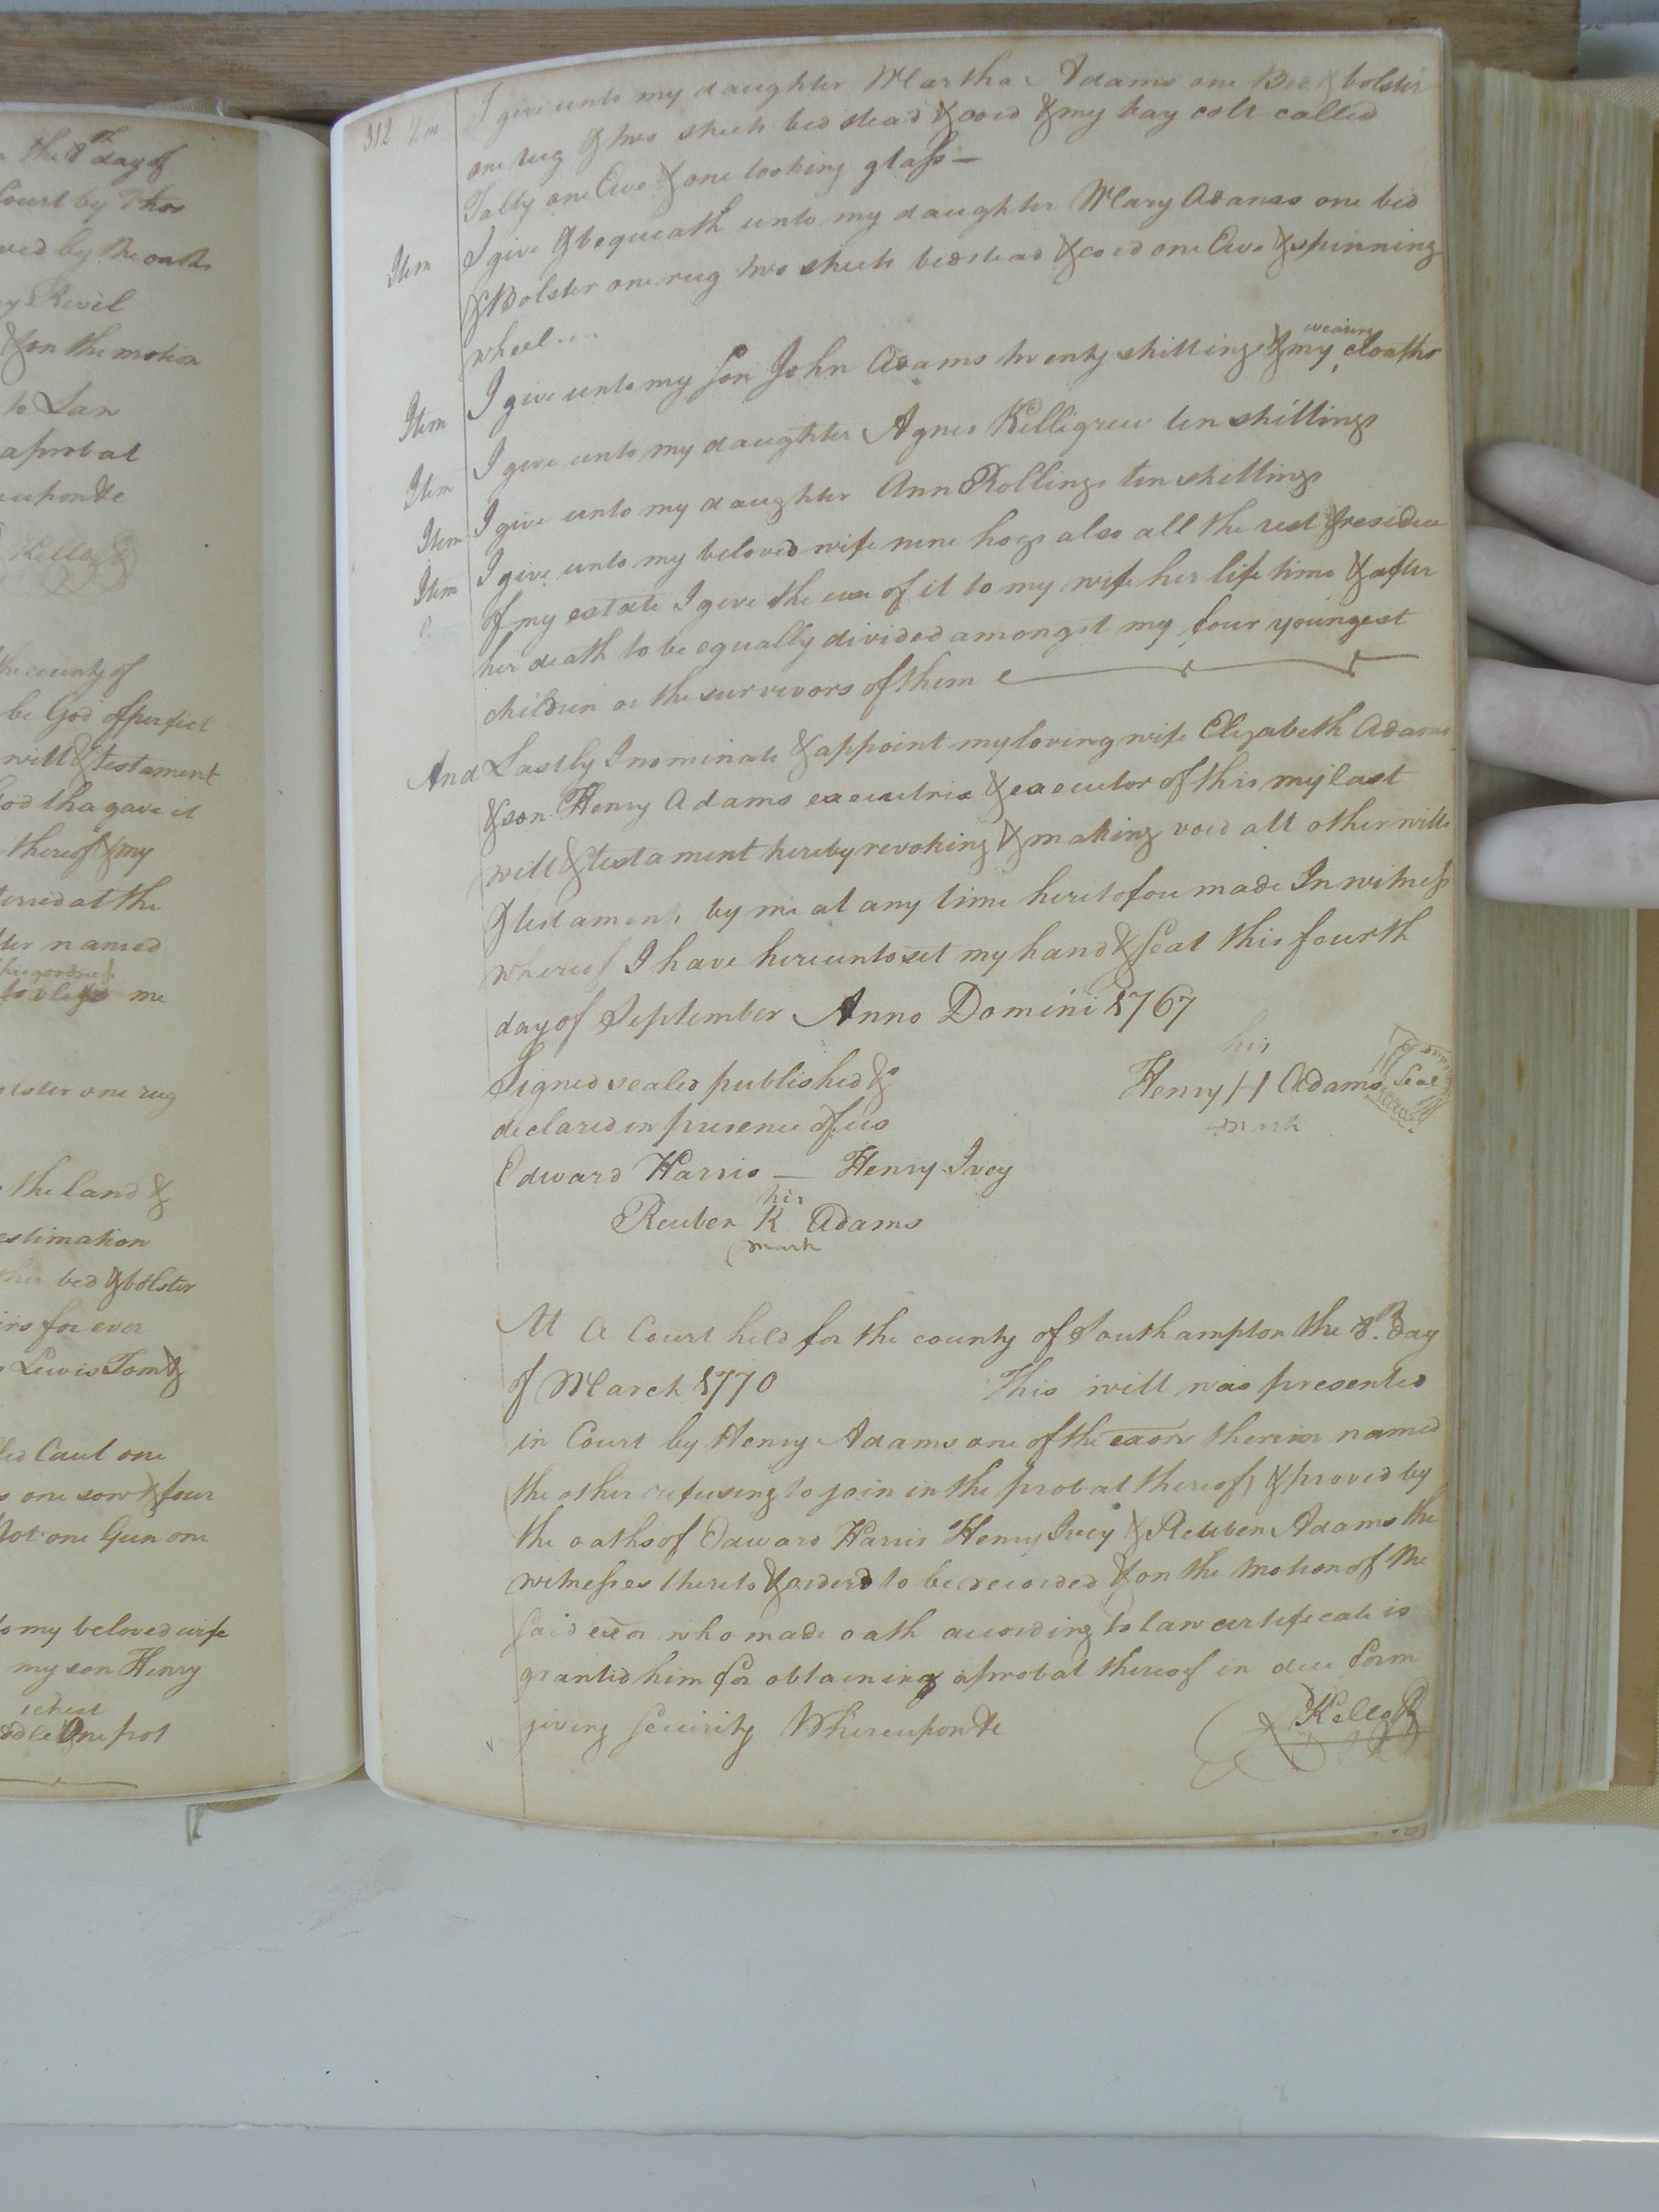 the 8th day of
Court by Thos
ved by the oaths
y Revil
& on the motion
to Law
aprobat
eupon &c
Kello CC
the county of
be God of perfect
will & testament
God tha gave it
thereof & my
terred at the
ter named
his goodness
to bless me
olster one rug
the land &
estimation
her bed & bolster
irs for ever
Lewis Tom &
led Caul one
one sow & four
Pot one Gun one
to my beloved wife
my son Henry
1 chest
addle One pot
312 Item I give unto my daughter Martha Adams one Bed & bolster
one rug & two sheets bed stead & cord & my bay colt called
Tally one Ewe & one looking glass —
Item I give & bequeath unto my daughter Mary Adams one bed
& Bolster one rug two sheets bedstead & cord one Ewe & spinning
wheel ...
wearing
Item I give unto my Son John Adams twenty shillings & my cloaths
Item I give unto my daughter Agnes Killigrew ten shillings
Item I give unto my daughter Ann Rollings ten shillings
Item I give unto my beloved wife nine hogs also all the rest & residue
of my estate I give the use of it to my wife her life time & after
her death to be equally divided amongst my four youngest
children or the survivors of them
And Lastly I nominate & appoint my loving wife Elizabeth Adams
& son Henry Adams executrix & executor of this my last
will & testament hereby revoking & making void all other wills
& testaments by me at any time heretofore made In witness
whereof I have hereunto set my hand & Seal this fourth
day of September Anno Domini 1767
his
Signed sealed published & Henry H Adams Seal
mark
declared in presence of us
Edward Harris — Henry Ivey
his
Reuben K Adams
mark
At a Court held for the county of Southampton the 8th Day
of March 1770 This will was presented
in Court by Henry Adams one of the exors therein named
the other refusing to join in the probat thereof, & proved by
the oaths of Edward Harris Henry Ivey & Reuben Adams the
witnesses thereto & orderd to be recorded & on the Motion of the
Said exor who made oath according to law certificate is
granted him for obtaining aprobat thereof in due form
giving Security Whereupon &c
Kello CC